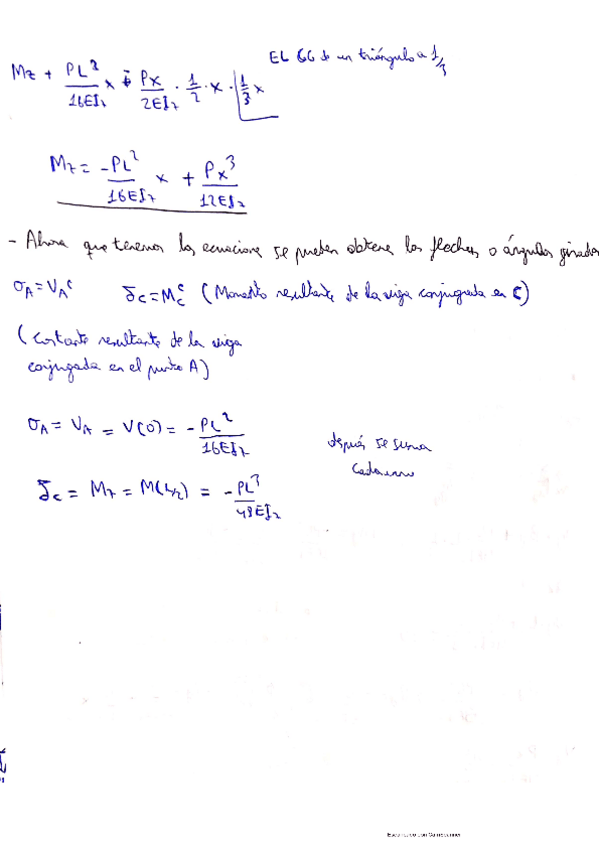 EL GG de un triángulo a 1/3
Mz + PL²/16EIz x + Px/2EIz · 1/2 · x · 1/3 x
Mz = -PL²/16EIz x + Px³/12EIz
- Ahora que tenemos las ecuaciones se pueden obtener las flechas o ángulos girados
σA = VA^c    δc = Mc^c (Momento resultante de la viga conjugada en C)
(Cortante resultante de la viga
conjugada en el punto A)
σA = VA = V(0) = -PL²/16EIz
después se suma
cada uno
δc = Mz = M(L/2) = -PL³/48EIz
Escaneado con CamScanner